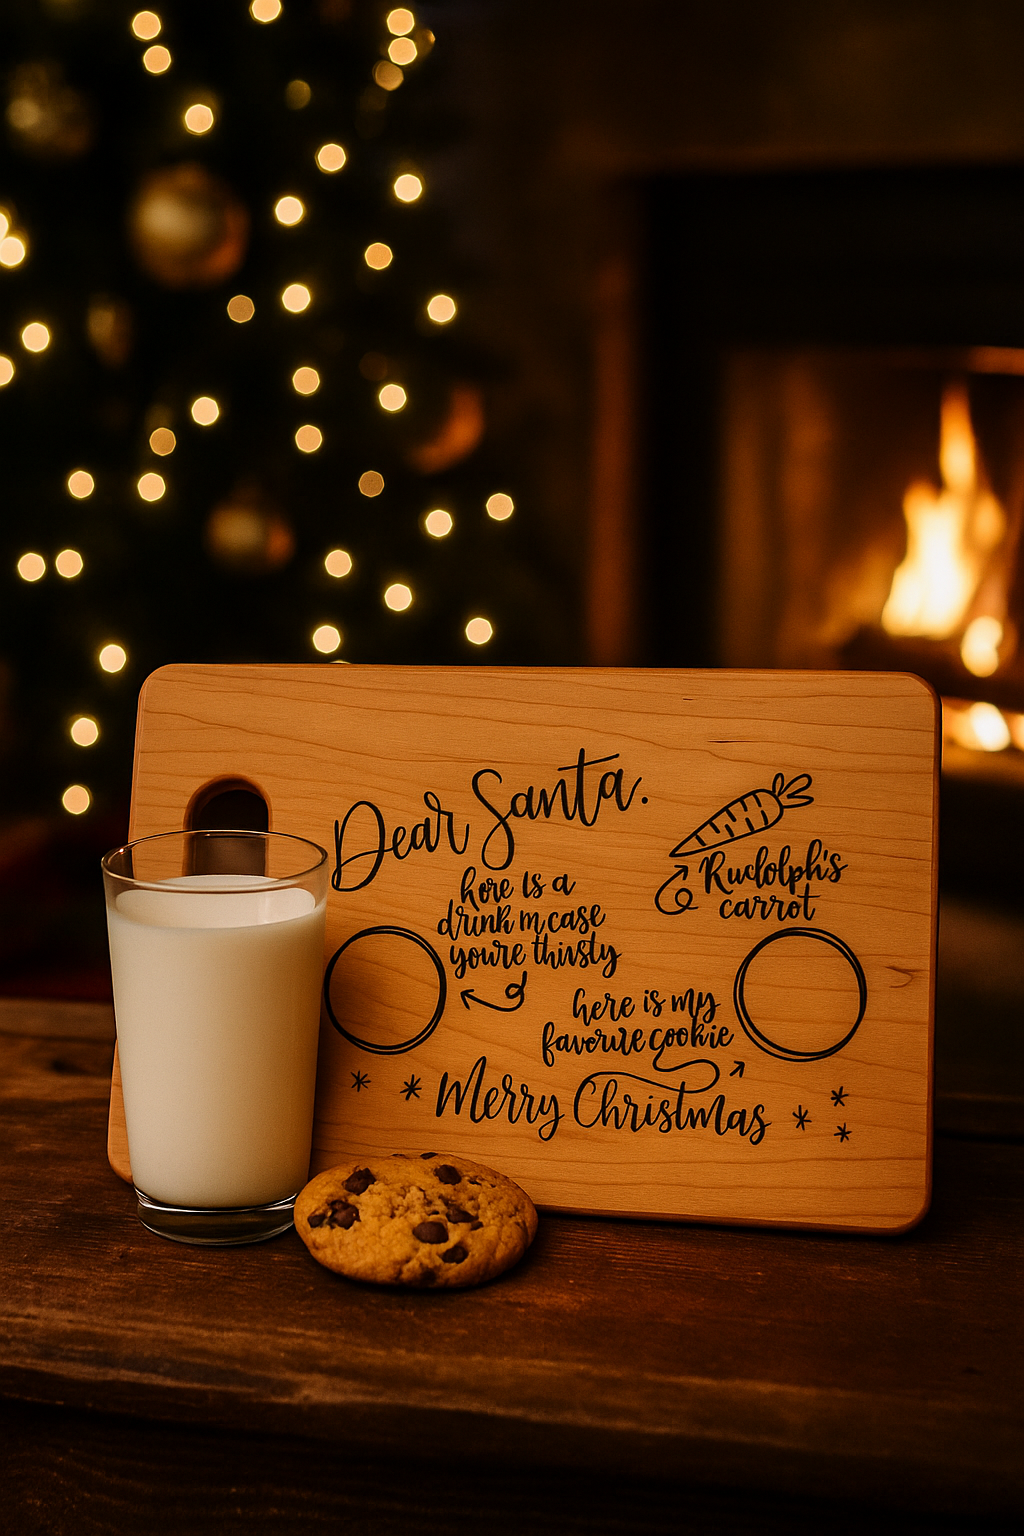 Dear Santa.
here is a
drink in case
youre thirsty
Rudolph's
carrot
here is my
favorite cookie
Merry Christmas